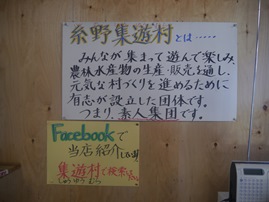 糸野集遊村とは・・・・・
みんなが集まって遊んで楽しみ、
農林水産物の生産・販売を通し、
元気な村づくりを進めるために
有志が設立した団体です。
つまり、素人集団です。
Facebookで
当店紹介
集遊村で検索